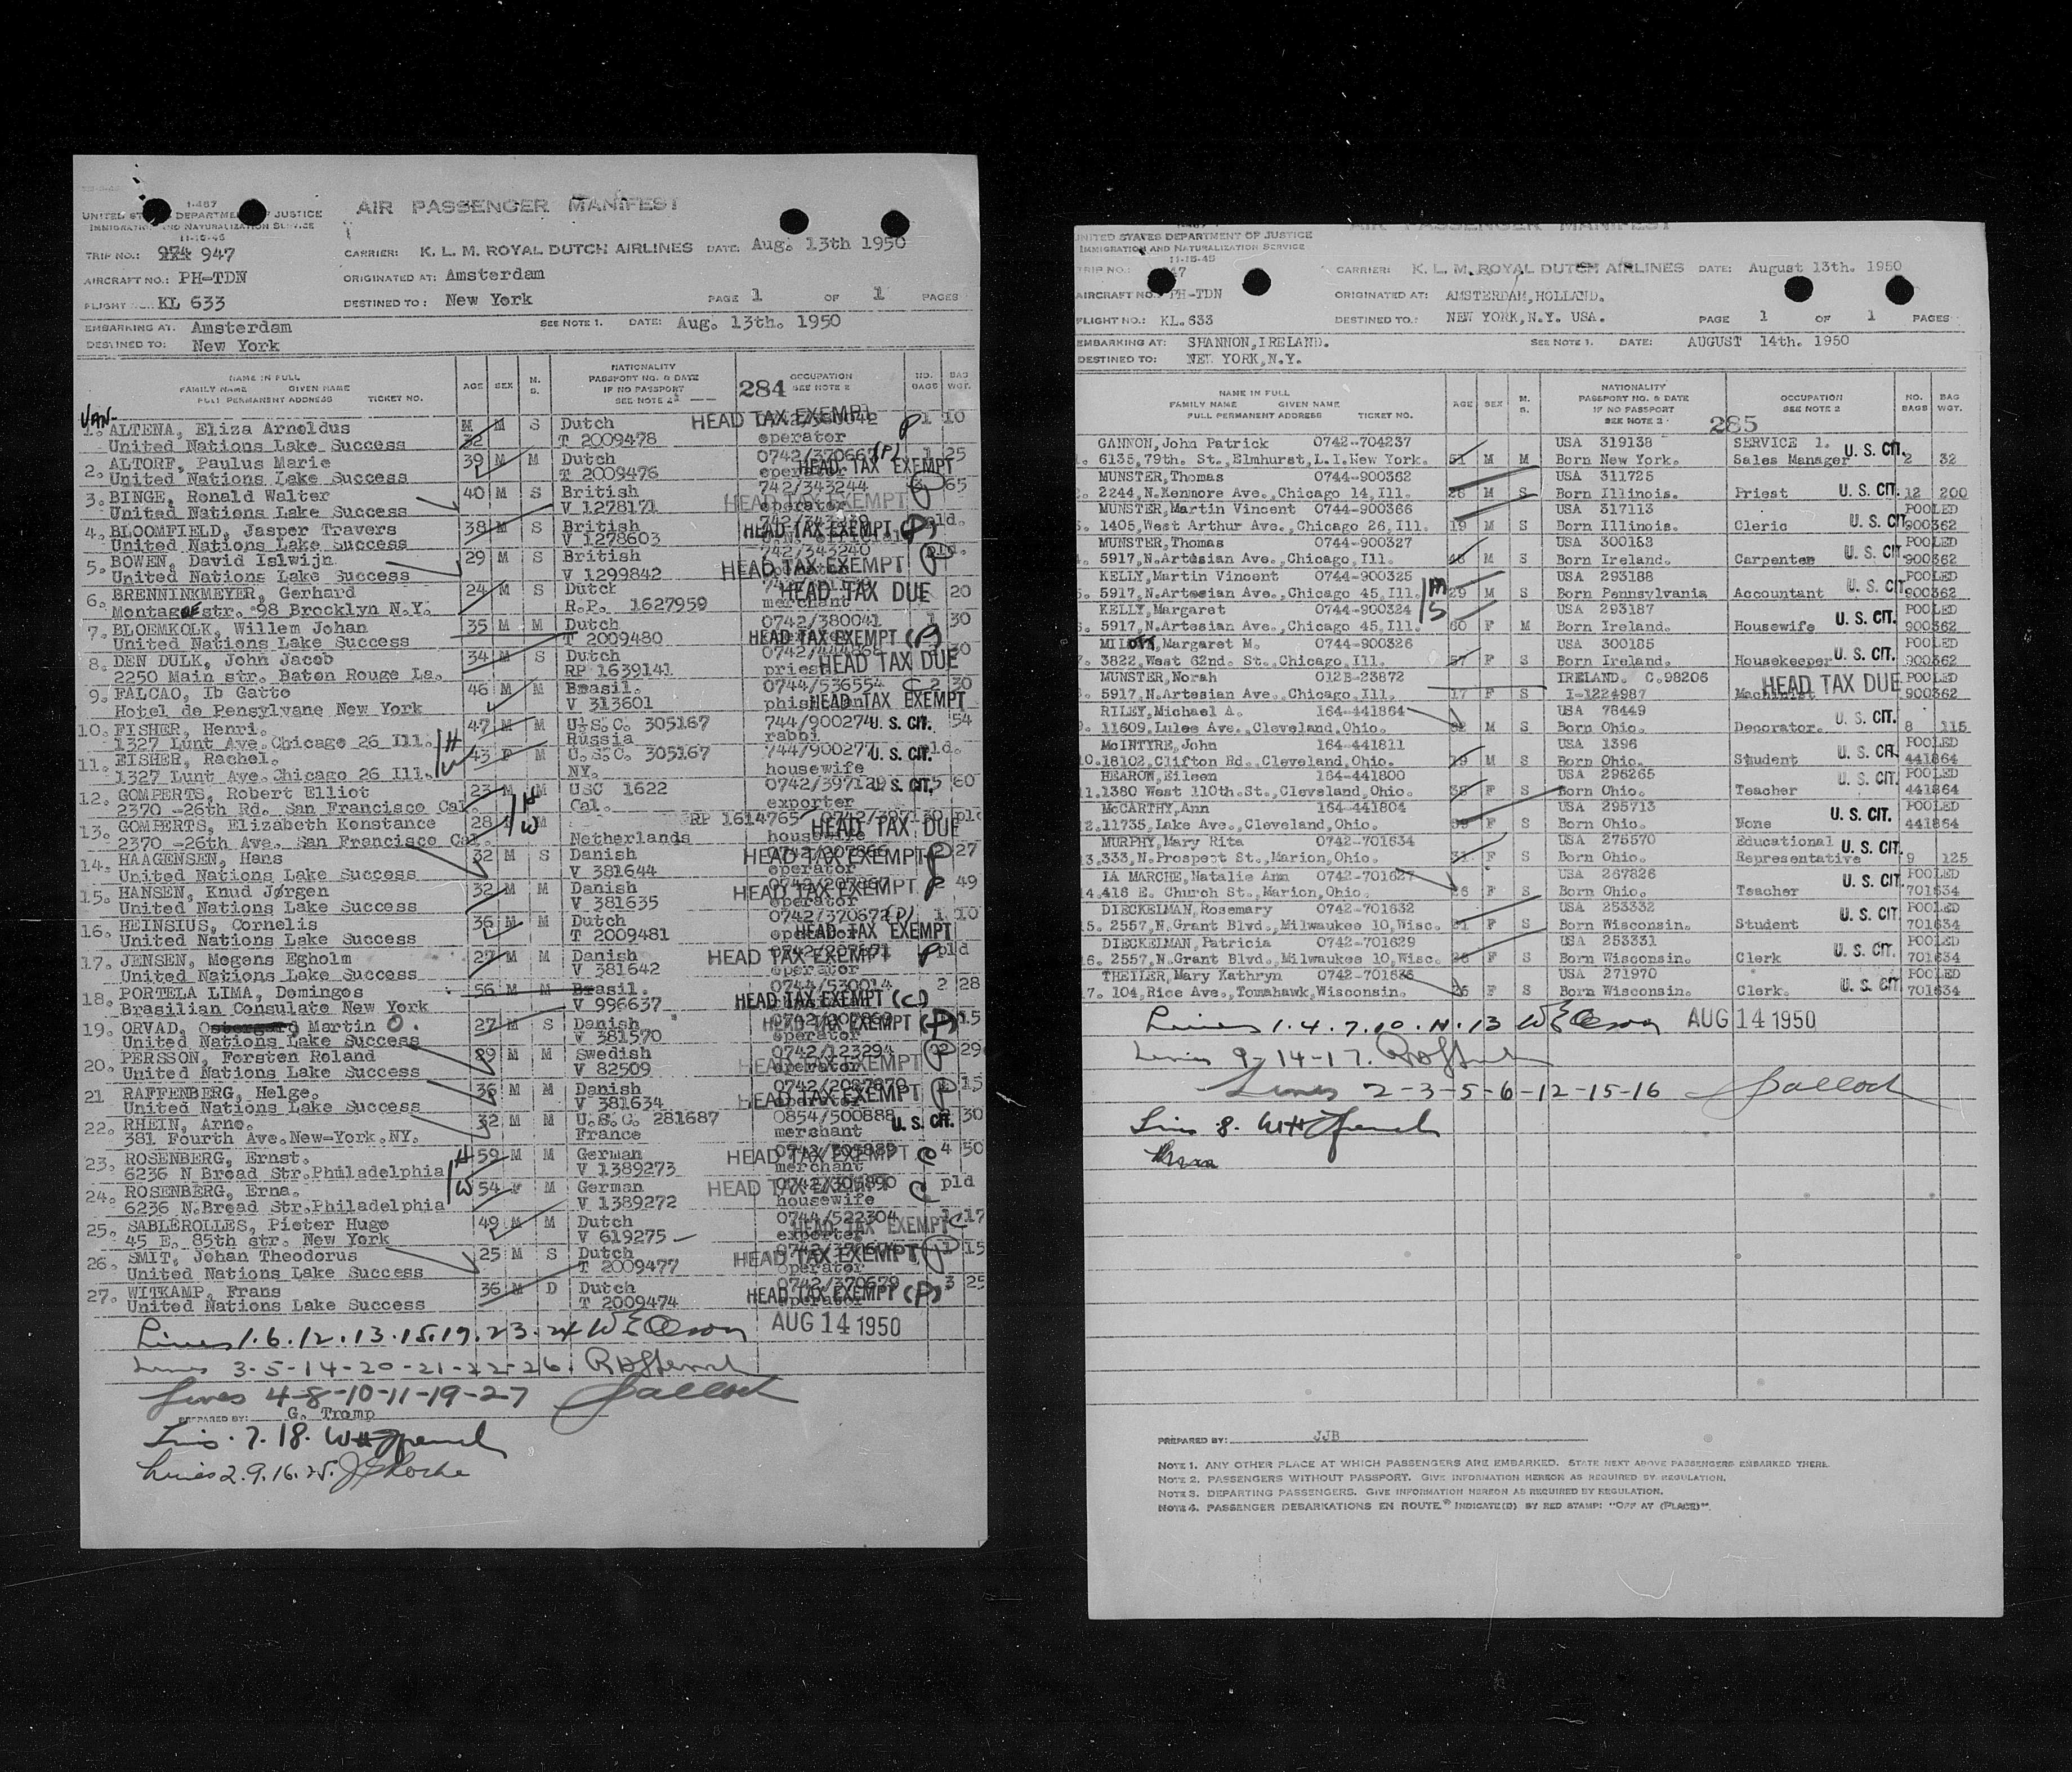 I-467
UNITED STATES DEPARTMENT OF JUSTICE
IMMIGRATION AND NATURALIZATION SERVICE
11-15-45
AIR PASSENGER MANIFEST
TRIP NO.: 974 947
CARRIER: K. L. M. ROYAL DUTCH AIRLINES DATE: Aug. 13th 1950
AIRCRAFT NO.: PH-TDN
ORIGINATED AT: Amsterdam
FLIGHT NO.: KL 633
DESTINED TO: New York PAGE 1 OF 1 PAGES
EMBARKING AT. Amsterdam SEE NOTE 1. DATE: Aug. 13th. 1950
DESTINED TO: New York
NAME IN FULL
FAMILY NAME GIVEN NAME
FULL PERMANENT ADDRESS TICKET NO.
AGE SEX M. S.
NATIONALITY
PASSPORT NO. & DATE
IF NO PASSPORT
SEE NOTE 2
284
OCCUPATION
SEE NOTE 2
NO. BAGS
BAG WGT.
VAN
1. ALTENA, Eliza Arnoldus M 32 M S Dutch HEAD TAX EXEMPT P 1 10
United Nations Lake Success T 2009478 operator
2. ALTORF, Paulus Marie 39 M M Dutch 0742/370667 (P) 1 25
United Nations Lake Success T 2009476 operator HEAD TAX EXEMPT
3. BINGE, Ronald Walter 40 M S British 742/343244 65
United Nations Lake Success V 1278171 operator HEAD TAX EXEMPT
4. BLOOMFIELD, Jasper Travers 38 M S British HEAD TAX EXEMPT (P) pld.
United Nations Lake Success V 1278603
5. BOWEN, David Islwijn 29 M S British 742/343240 pld.
United Nations Lake Success V 1299842 HEAD TAX EXEMPT (P)
6. BRENNINKMEYER, Gerhard 24 M S Dutch HEAD TAX DUE 20
Montague str. 98 Brocklyn N.Y. R.P. 1627959 merchant
7. BLOEMKOLK, Willem Johan 35 M M Dutch 0742/380041 1 30
United Nations Lake Success T 2009480 HEAD TAX EXEMPT (P)
8. DEN DULK, John Jacob 34 M S Dutch 0742/444368 30
2250 Main str. Baton Rouge La. RP 1639141 priest HEAD TAX DUE
9. FALCAO, Ib Gatto 46 M M Brasil. 0744/536554 C 2 30
Hotel de Pensylvane New York V 313601 HEAD TAX EXEMPT
10. FISHER, Henri. 47 M M U.S.C. 305167 744/900274 U. S. CIT. 54
1327 Lunt Ave.Chicago 26 Ill. H Russia rabbi
11. FISHER, Rachel. W 43 F M U.S.C. 305167 744/900277 U. S. CIT. pld.
1327 Lunt Ave.Chicago 26 Ill. NY. housewife
12. GOMPERTS, Robert Elliot 23 M M USC 1622 0742/397129 U. S. CIT. 5 60
2370 -26th Rd. San Francisco Cal. H Cal. exporter
13. GOMPERTS, Elizabeth Konstance 28 W M RP 1614765 0742/397130 pld
2370 -26th Ave. San Francisco Cal. Netherlands housewife HEAD TAX DUE
14. HAAGENSEN, Hans 32 M S Danish 0742/207866 HEAD TAX EXEMPT P 2 27
United Nations Lake Success V 381644 operator
15. HANSEN, Knud Jørgen 32 M M Danish HEAD TAX EXEMPT P 2 49
United Nations Lake Success V 381635 operator
16. HEINSIUS, Cornelis 36 M M Dutch 0742/370672 (P) 1 10
United Nations Lake Success T 2009481 operator HEAD TAX EXEMPT
17. JENSEN, Mogens Egholm 27 M M Danish 0742/207871 HEAD TAX EXEMPT P pld
United Nations Lake Success V 381642 operator
18. PORTELA LIMA, Domingos 56 M M Brasil. 0744/530014 2 28
Brasilian Consulate New York V 996637 HEAD TAX EXEMPT (C)
19. ORVAD, Ostergard Martin O. 27 M S Danish HEAD TAX EXEMPT (P) 15
United Nations Lake Success V 381570 operator
20. PERSSON, Forsten Roland 29 M M Swedish 0742/123294 P 2 29
United Nations Lake Success V 82509 operator HEAD TAX EXEMPT
21 RAFFENBERG, Helge. 36 M M Danish 0742/2087870 P 15
United Nations Lake Success V 381634 operator HEAD TAX EXEMPT
22. RHEIN, Arno. 32 M M U.S.C. 281687 0854/500888 30
381 Fourth Ave.New-York.NY. France merchant U. S. CIT.
23. ROSENBERG, Ernst. H 59 M M German HEAD TAX EXEMPT C 4 50
6236 N Broad Str.Philadelphia V 1389273 merchant
24. ROSENBERG, Erna. W 54 F M German HEAD TAX EXEMPT C pld
6236 N.Broad Str.Philadelphia V 1389272 housewife
25. SABLEROLLES, Pieter Hugo 49 M M Dutch 0744/522304 1 17
45 E. 85th str. New York V 619275 exporter HEAD TAX EXEMPT C
26. SMIT, Johan Theodorus 25 M S Dutch HEAD TAX EXEMPT (P) 1 15
United Nations Lake Success T 2009477 operator
27. WITKAMP, Frans 36 M D Dutch 0742/370679 3 25
United Nations Lake Success T 2009474 operator HEAD TAX EXEMPT (P)
Lines 1.6.12.13.15.19.23.24 W E Olson AUG 14 1950
Lines 3-5-14-20-21-22-26.
Lines 4-8-10-11-19-27
PREPARED BY: G. Tromp
Lines 7.18.
Lines 2.9.16.25.
AIR PASSENGER MANIFEST
UNITED STATES DEPARTMENT OF JUSTICE
IMMIGRATION AND NATURALIZATION SERVICE
11-15-45
TRIP NO.: 947 CARRIER: K. L. M. ROYAL DUTCH AIRLINES DATE: August 13th. 1950
AIRCRAFT NO. PH-TDN ORIGINATED AT: AMSTERDAM,HOLLAND.
FLIGHT NO.: KL.633 DESTINED TO.: NEW YORK,N.Y. USA. PAGE 1 OF 1 PAGES
EMBARKING AT: SHANNON,IRELAND. SEE NOTE 1. DATE: AUGUST 14th. 1950
DESTINED TO: NEW YORK,N.Y.
NAME IN FULL
FAMILY NAME GIVEN NAME
FULL PERMANENT ADDRESS TICKET NO.
AGE SEX M. S.
NATIONALITY
PASSPORT NO. & DATE
IF NO PASSPORT
SEE NOTE 2
285
OCCUPATION
SEE NOTE 2
NO. BAGS
BAG WGT.
GANNON,John Patrick 0742-704237 USA 319138 SERVICE 1.
6135,79th. St.,Elmhurst,L.I.New York. 51 M M Born New York. Sales Manager U. S. CIT. 2 32
MUNSTER,Thomas 0744-900362 USA 311725
2. 2244,N.Kenmore Ave.,Chicago 14,Ill. 26 M S Born Illinois. Priest U. S. CIT. 12 200
MUNSTER,Martin Vincent 0744-900366 USA 317113 POOLED
3. 1405,West Arthur Ave.,Chicago 26,Ill. 19 M S Born Illinois. Cleric U. S. CIT. 900362
MUNSTER,Thomas 0744-900327 USA 300153 POOLED
5917,N.Artesian Ave.,Chicago,Ill. 48 M S Born Ireland. Carpenter U. S. CIT. 900362
KELLY,Martin Vincent 0744-900325 USA 293188 POOLED
5. 5917,N.Artesian Ave.,Chicago 45,Ill. M 29 M S Born Pennsylvania Accountant U. S. CIT. 900362
KELLY,Margaret 0744-900324 S USA 293187 POOLED
5917,N.Artesian Ave.,Chicago 45,Ill. 60 F M Born Ireland. Housewife U. S. CIT. 900362
MILOTT,Margaret M. 0744-900326 USA 300185 POOLED
7. 3822,West 62nd. St.,Chicago,Ill. 57 F S Born Ireland. Housekeeper U. S. CIT. 900362
MUNSTER,Norah 012B-23872 IRELAND. C.98206 POOLED
5917,N.Artesian Ave.,Chicago,Ill. 17 F S I-1224987 Machinist HEAD TAX DUE 900362
RILEY,Michael A. 164-441864 USA 78449
9. 11609,Lulee Ave.,Cleveland,Ohio. 32 M S Born Ohio. Decorator. U. S. CIT. 8 115
McINTYRE,John 164-441811 USA 1396 POOLED
10. 18102,Clifton Rd.,Cleveland,Ohio. 19 M S Born Ohio. Student U. S. CIT. 441864
HEARON,Eileen 164-441800 USA 296265 POOLED
11. 1380 West 110th.St.,Cleveland,Ohio. 38 F S Born Ohio. Teacher U. S. CIT. 441864
McCARTHY,Ann 164-441804 USA 295713 POOLED
12. 11735,Lake Ave.,Cleveland,Ohio. 39 F S Born Ohio. None U. S. CIT. 441864
MURPHY,Mary Rita 0742-701634 USA 275570 Educational
13. 333,N.Prospect St.,Marion,Ohio. 31 F S Born Ohio. Representative U. S. CIT. 9 125
LA MARCHE,Natalie Ann 0742-701627 USA 267826 POOLED
14. 416 E. Church St.,Marion,Ohio. 26 F S Born Ohio. Teacher U. S. CIT. 701634
DIECKELMAN,Rosemary 0742-701632 USA 253332 POOLED
15. 2557,N.Grant Blvd.,Milwaukee 10,Wisc. 21 F S Born Wisconsin. Student U. S. CIT. 701634
DIECKELMAN,Patricia 0742-701629 USA 253331 POOLED
16. 2557,N.Grant Blvd.,Milwaukee 10,Wisc. 26 F S Born Wisconsin. Clerk U. S. CIT. 701634
THEILER,Mary Kathryn 0742-701636 USA 271970 POOLED
17. 104,Rice Ave.,Tomahawk,Wisconsin. 26 F S Born Wisconsin. Clerk. U. S. CIT. 701634
Lines 1.4.7.10.11.13 W E Olson AUG 14 1950
Lines 9-14-17.
Lines 2-3-5-6-12-15-16
Line 8.
PREPARED BY: JJB
NOTE 1. ANY OTHER PLACE AT WHICH PASSENGERS ARE EMBARKED. STATE NEXT ABOVE PASSENGERS EMBARKED THERE.
NOTE 2. PASSENGERS WITHOUT PASSPORT. GIVE INFORMATION HEREON AS REQUIRED BY REGULATION.
NOTE 3. DEPARTING PASSENGERS. GIVE INFORMATION HEREON AS REQUIRED BY REGULATION.
NOTE 4. PASSENGER DEBARKATIONS EN ROUTE. INDICATE(D) BY RED STAMP: "OFF AT (PLACE)".